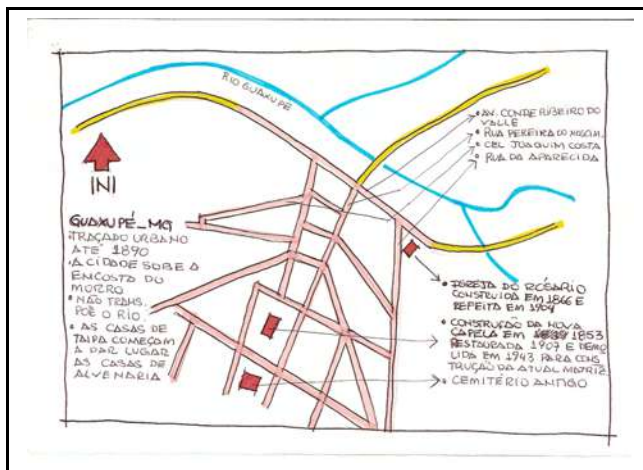 RIO GUAXUPÉ
• AV. CONDE RIBEIRO DO
VALLE
• RUA PEREIRA DO NASCIM.
• CEL JOAQUIM COSTA
• RUA DA APARECIDA
N
GUAXUPÉ-MG
• TRAÇADO URBANO
ATÉ 1890
• A CIDADE SOBE A
ENCOSTA DO
MORRO
• NÃO TRANS.
PÕE O RIO.
• AS CASAS DE
TAIPA COMEÇAM
A DAR LUGAR
AS CASAS DE
ALVENARIA
• IGREJA DO ROSÁRIO
CONSTRUIDA EM 1866 E
REFEITA EM 1904
• CONSTRUÇÃO DA NOVA
CAPELA EM 1853
RESTAURADA 1907 E DEMO
LIDA EM 1943 PARA CONS
TRUÇÃO DA ATUAL MATRIZ
• CEMITÉRIO ANTIGO